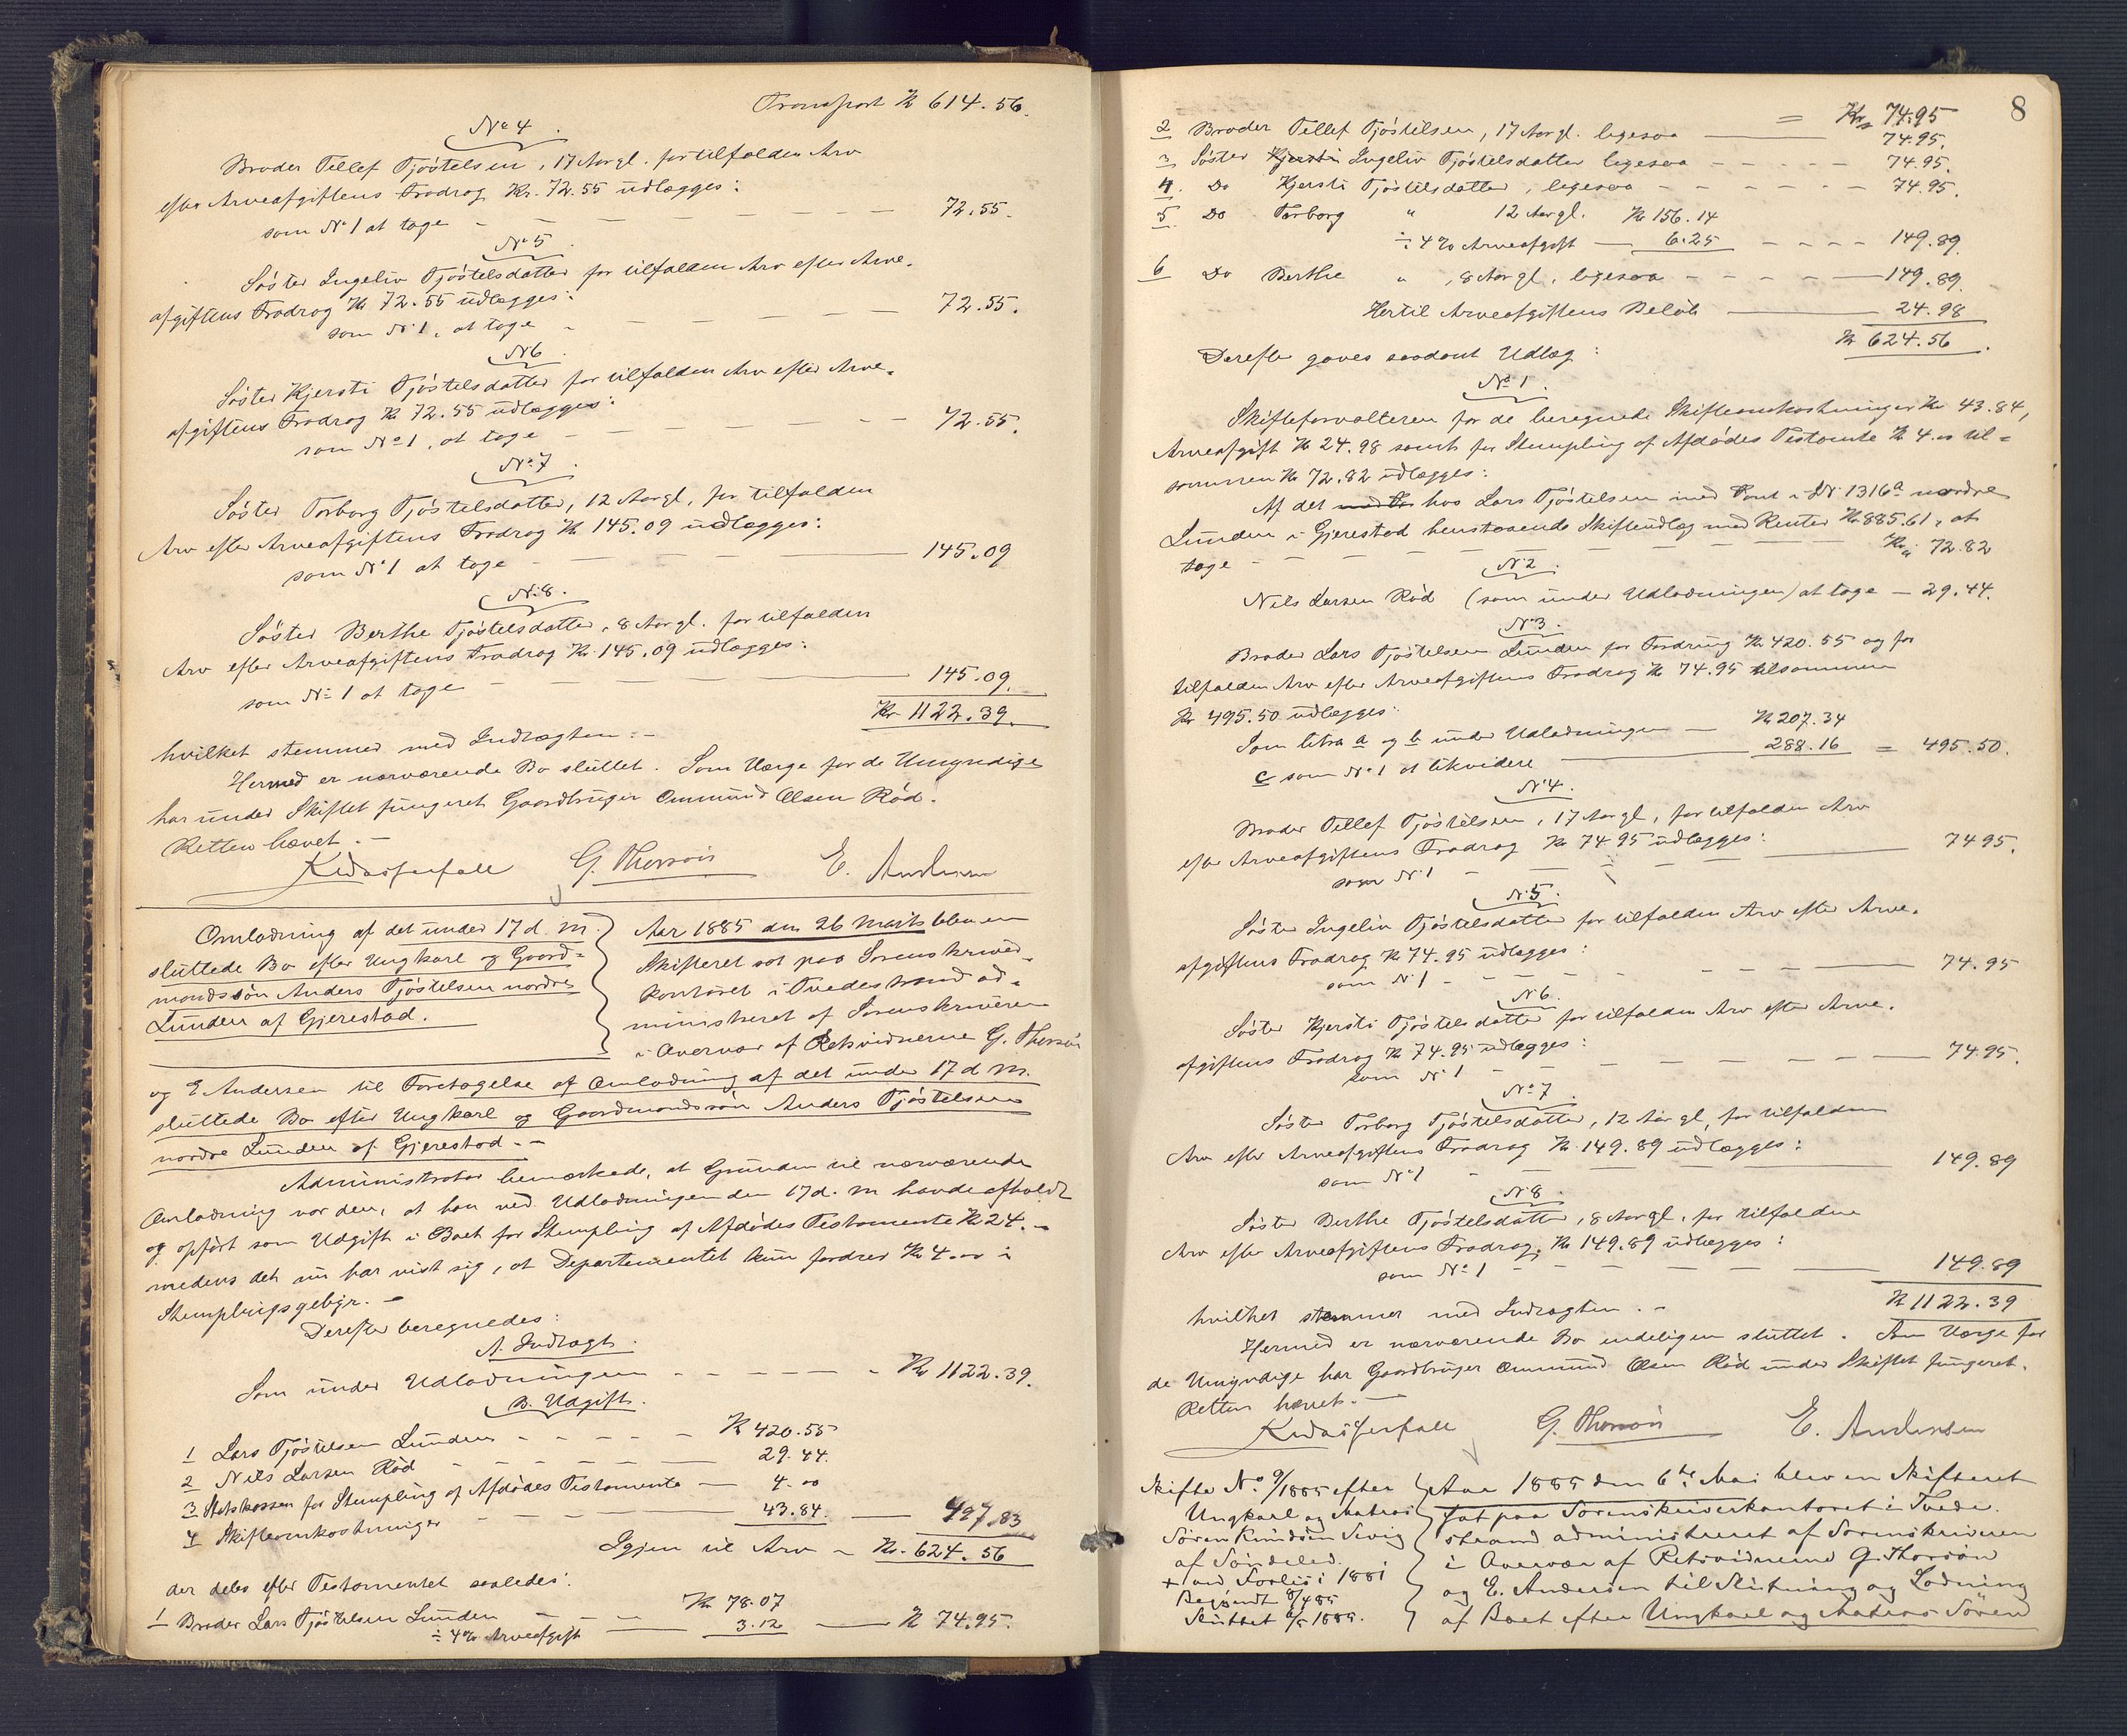 Transport Kr 614.56.
No 4.
Broder Tellef Tjöstelsen, 17 Aar gl. for tilfalden Arv
efter Arveafgiftens Fradrag Kr. 72.55 udlægges:
som No 1 at tage - - - - - - 72.55.
No 5.
Söster Ingeliv Tjöstelsdatter for tilfalden Arv efter Arve-
afgiftens Fradrag Kr 72.55 udlægges:
som No 1, at tage - - - - - - 72.55.
No 6.
Söster Kjersti Tjöstelsdatter for tilfalden Arv efter Arve-
afgiftens Fradrag Kr 72.55 udlægges:
som No 1, at tage - - - - - - 72.55.
No 7.
Söster Torborg Tjöstelsdatter, 12 Aar gl, for tilfalden
Arv efter Arveafgiftens Fradrag Kr 145.09 udlægges:
som No 1 at tage - - - - 145.09
No 8.
Söster Berthe Tjöstelsdatter, 8 Aar gl. for tilfalden
Arv efter Arveafgiftens Fradrag Kr. 145.09 udlægges:
som No 1 at tage - - - - 145.09.
Kr 1122.39.
hvilket stemmer med Indtægten.-
Hermed er nærværende Bo sluttet. Som Værge for de Umyndige
har under Skiftet fungeret Gaardbruger Ommund Olsen Röd.
Retten hævet.-
G. Thorsön E. Andersen
Omlodning af det under 17 d. M.
sluttede Bo efter Ungkarl og Gaard-
mandssön Anders Tjöstelsen nordre
Lunden af Gjerestad.
Aar 1885 den 26 Marts blev en
Skifteret sat paa Sorenskriver-
kontoret i Tvedestrand ad-
ministreret af Sorenskriveren
i Overvær af Retsvidnerne G. Thorsön
og E Andersen til Foretagelse af Omlodning af det under 17 d M.
sluttede Bo efter Ungkarl og Gaardmandssön Anders Tjöstelsen
nordre Lunden af Gjerestad.-
Administrator bemærkede, at Grunden til nærværende
Omlodning var den, at han ved Udlodningen den 17 d. M havde afholdt
og opfört som Udgift i Boet for Stempling af Afdödes Testamente Kr 24.-
medens det nu har vist sig, at Departementet kun fordrer Kr 4.00 i
Stemplingsgebyr.-
Derefter beregnedes:
A. Indtægt.
Som under Udlodningen - - - - - Kr 1122.39.
B. Udgift.
1 Lars Tjöstelsen Lunden - - - - - Kr 420.55
2 Nils Larsen Röd - - - - - 29.44.
3 Statskassen for Stempling af Afdödes Testamente - 4.00
4 Skifteomkostninger - - - 43.84. - 497.83
Igjen til Arv - Kr. 624.56
der deles efter Testamentet saaledes:
1 Broder Lars Tjöstelsen Lunden - - - Kr 78.07
÷ 4% Arveafgift - 3.12 - Kr 74.95.
8
= Kr 74.95
2 Broder Tellef Tjöstelsen, 17 Aar gl. ligesaa - 74.95.
3 Söster Kjersti Ingeliv Tjöstelsdatter ligesaa - - - - - 74.95.
4. Do Kjersti Tjöstelsdatter, ligesaa - - - - - 74.95.
5 Do Torborg " 12 Aar gl. Kr 156.14
÷ 4% Arveafgift - 6.25 - - - - 149.89.
6 Do Berthe " , 8 Aar gl, ligesaa - - - - 149.89.
Hertil Arveafgiftens Belöb - 24.98
Kr 624.56.
Derefter gaves saadant Udlæg:
No 1.
Skifteforvalteren for de beregnede Skifteomkostninger Kr 43.84,
Arveafgift Kr 24.98 samt for Stempling af Afdödes Testamente Kr 4.00 til-
sammen Kr 72.82 udlægges:
Af det hos Lars Tjöstelsen med Pant i L.Nr. 1316a nordre
Lunden i Gjerestad henstaaende Skifteudlæg med Renter Kr 885.61, at
tage - - - - - - Kr 72.82
No 2.
Nils Larsen Röd (som under Udlodningen) at tage - 29.44.
No 3.
Broder Lars Tjöstelsen Lunden for Fordring Kr 420.55 og for
tilfalden Arv efter Arveafgiftens Fradrag Kr 74.95 tilsammen
Kr 495.50 udlægges:
Som litra a og b under Udlodningen - Kr 207.34
c som No 1 at likvidere - 288.16 = 495.50.
No 4.
Broder Tellef Tjöstelsen, 17 Aar gl, for tilfalden Arv
efter Arveafgiftens Fradrag Kr 74 95 udlægges:
som No 1 - - - - 74 95.
No 5.
Söster Ingeliv Tjöstelsdatter for tilfalden Arv efter Arve-
afgiftens Fradrag Kr 74.95 udlægges:
som No 1 - - - - - - 74.95
No 6.
Söster Kjersti Tjöstelsdatter for tilfalden Arv efter Arve-
afgiftens Fradrag Kr 74.95 udlægges:
som No 1 - - - - - - 74.95.
No 7.
Söster Torborg Tjöstelsdatter, 12 Aar gl, for tilfalden
Arv efter Arveafgiftens Fradrag Kr. 149.89 udlægges:
som No 1 - - - 149.89
No 8.
Söster Berthe Tjöstelsdatter, 8 Aar gl. for tilfalden
Arv efter Arveafgiftens Fradrag, Kr 149.89 udlægges:
som No 1 - - - - - 149.89
Kr 1122.39
hvilket stemmer med Indtægten.-
Hermed er nærværende Bo endeligen sluttet. Som Værge for
de Umyndige har Gaardbruger Ommund Olsen Röd under Skiftet fungeret.
Retten hævet.-
G. Thorsön E. Andersen
Skifte No 9/1885 efter
Ungkarl og Matros
Sören Knudsen Sivig
af Söndeled.
+ ved Forlis i 1881
Begyndt 8/4 85
Sluttet 6/5 1885.
Aar 1885 den 6te Mai blev en Skifteret
sat paa Sorenskriverkontoret i Tvede-
strand administreret af Sorenskriveren
i Overvær af Retsvidnerne G. Thorsön
og E. Andersen til Slutning og Lodning
af Boet efter Ungkarl og Matros Sören